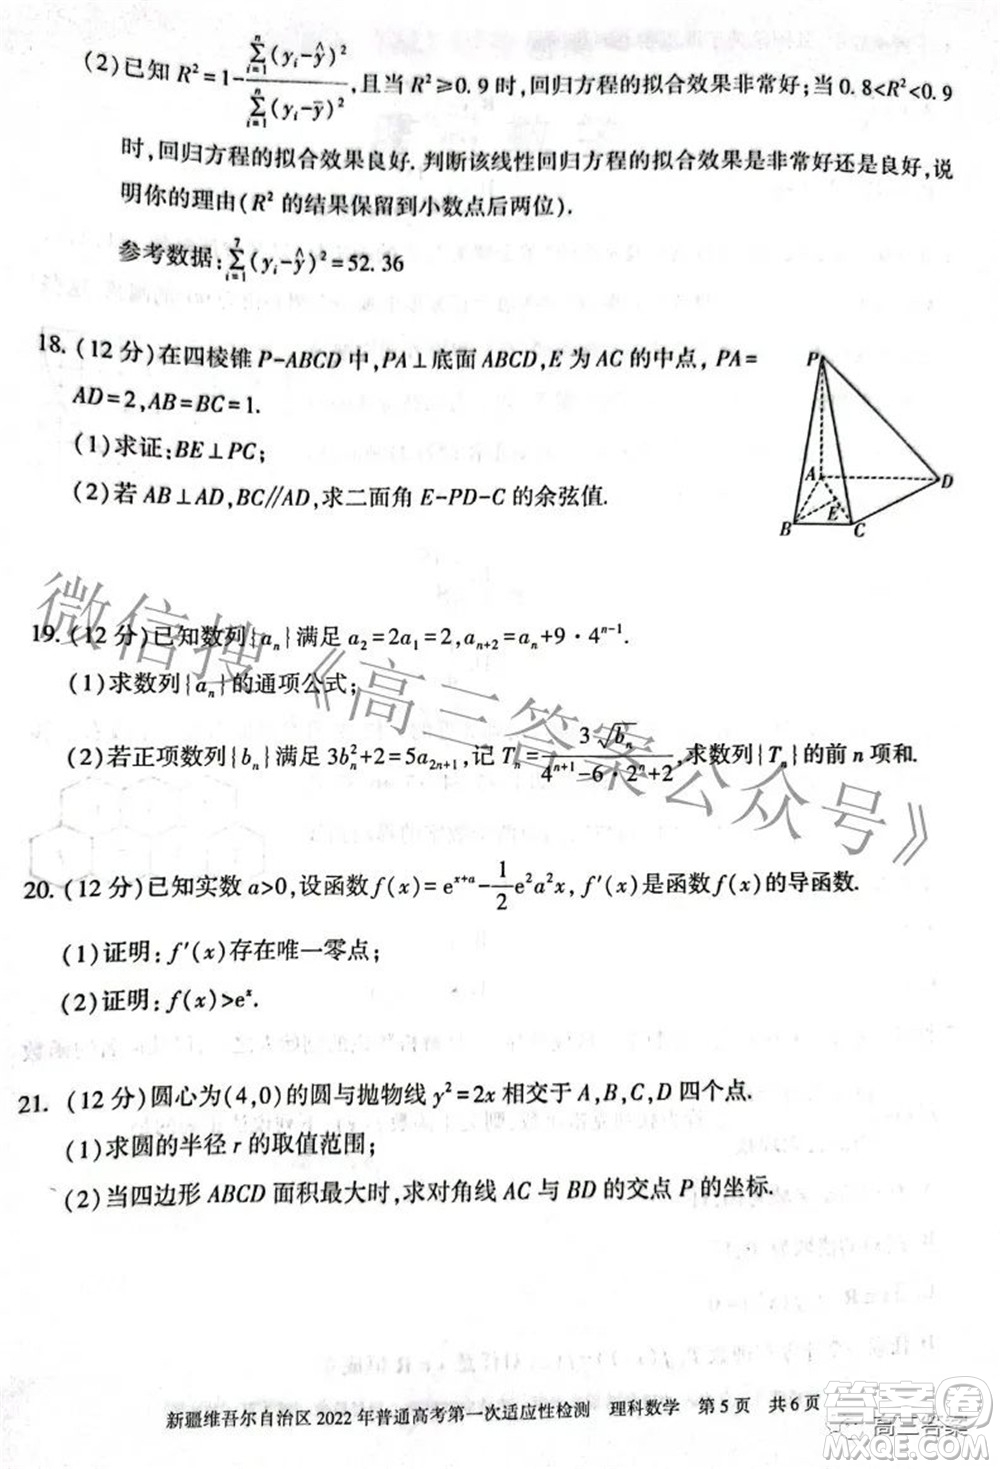 (2)已知 R²=1-\frac{\sum_{i=1}^{n}(y_i-\hat{y})^2}{\sum_{i=1}^{n}(y_i-\bar{y})^2},且当 R²≥0.9 时,回归方程的拟合效果非常好;当 0.8<R²<0.9
时,回归方程的拟合效果良好.判断该线性回归方程的拟合效果是非常好还是良好,说
明你的理由(R² 的结果保留到小数点后两位).
参考数据:\sum_{i=1}^{7}(y_i-\hat{y})²=52.36
18.(12 分)在四棱锥 P-ABCD 中,PA⊥底面 ABCD,E 为 AC 的中点,PA=
AD=2,AB=BC=1.
(1)求证:BE⊥PC;
(2)若 AB⊥AD,BC∥AD,求二面角 E-PD-C 的余弦值.
P
A
D
B
E
C
19.(12 分)已知数列{a_n}满足 a_2=2a_1=2,a_{n+2}=a_n+9·4^{n-1}.
(1)求数列{a_n}的通项公式;
(2)若正项数列{b_n}满足 3b_n^2+2=5a_{2n+1},记 T_n=\frac{3\sqrt{b_n}}{4^{n+1}-6·2^n+2},求数列{T_n}的前 n 项和.
20.(12 分)已知实数 a>0,设函数 f(x)=e^{x+a}-\frac{1}{2}e²a²x,f′(x)是函数 f(x)的导函数.
(1)证明:f′(x)存在唯一零点;
(2)证明:f(x)>e^x.
21.(12 分)圆心为(4,0)的圆与抛物线 y²=2x 相交于 A,B,C,D 四个点.
(1)求圆的半径 r 的取值范围;
(2)当四边形 ABCD 面积最大时,求对角线 AC 与 BD 的交点 P 的坐标.
新疆维吾尔自治区 2022 年普通高考第一次适应性检测 理科数学 第 5 页 共 6 页
微信搜《高三答案公众号》
高三答案
答案圈
MXQE.COM